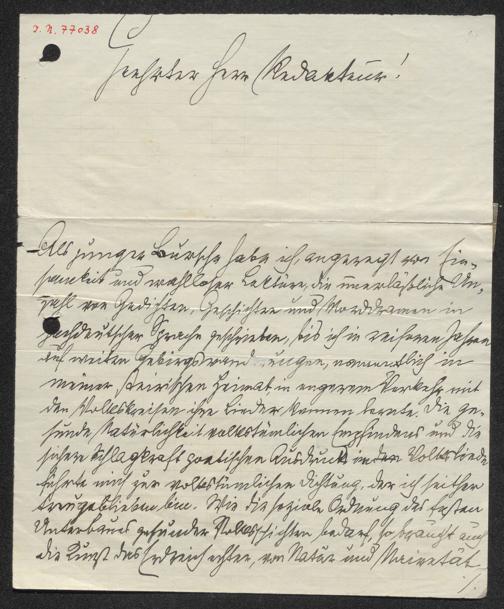 I.N. 77038
Geehrter Herr Redakteur!
Als junger Bursche habe ich, angeregt von Ein-
samkeit und wahlloser Lektüre, die unerlässliche An-
zahl von Gedichten, Geschichten und Morddramen in
hochdeutscher Sprache geschrieben, bis ich in reiferen Jahren
auf weiten Gebirgswanderungen, namentlich in
meiner steirischen Heimat, in engerem Verkehr mit
den Volkskreisen ihre Lieder kennen lernte. Die ge-
sunde Natürlichkeit volkstümlichen Empfindens und die
Schlagkraft poetischen Ausdrucks in dem Volksliede
führte mich zur volkstümlichen Dichtung, der ich seither
treugeblieben bin. Wie die soziale Ordnung des festen
Unterbaues gesunder Volksschichten bedarf, so braucht auch
die Kunst das Erdreich echter, von Natur und Naivetät
./.